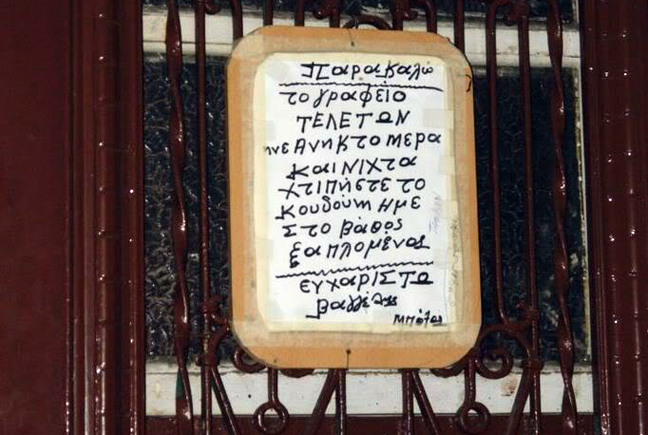 Παρακαλώ
το γραφείο
ΤΕΛΕΤΩΝ
ινε ΑΝΗΚΤΟ ΜΕΡΑ
ΚΑΙ ΝΙΧΤΑ
ΧΤΙΠΗΣΤΕ ΤΟ
Κουδούνη Ημε
Στο βάθος
ξαπλομένος
ΕΥΧΑΡΙΣΤΩ
βαγγέλης